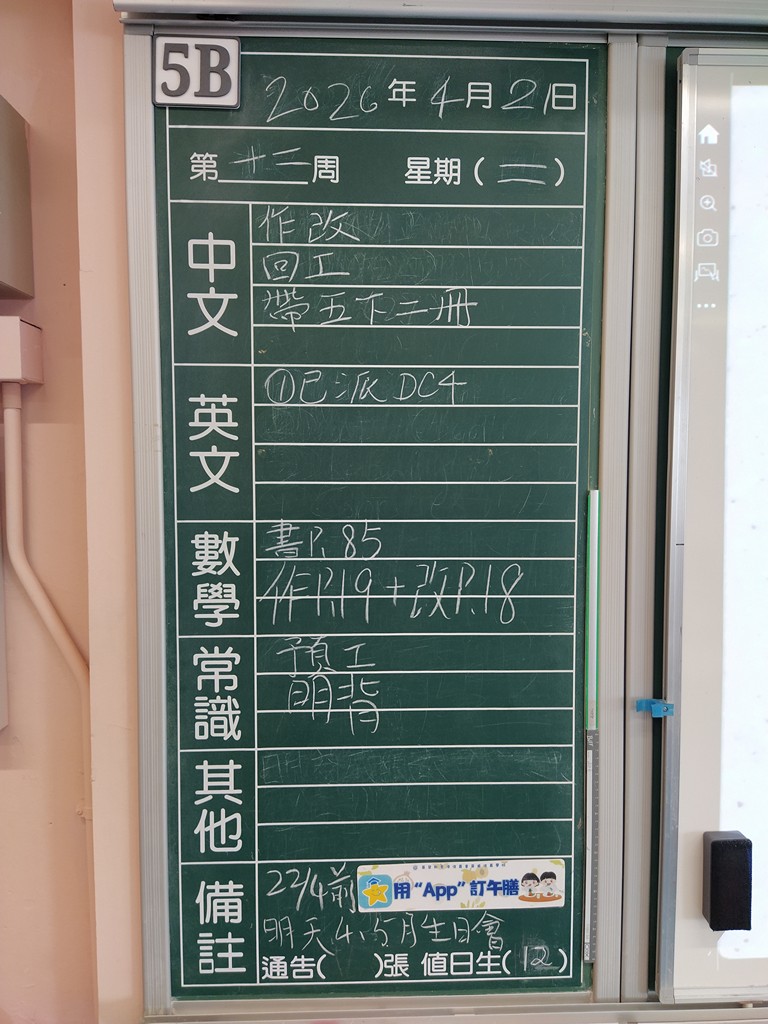 5B
2026年4月21日
第十二周 星期(二)
中文
作改
回工
帶五下二冊
英文
①已派DC4
數學
書P.85
作P.19+改P.18
常識
預工
明背
其他
備註
22/4前 用“App”訂午膳
明天4、5月生日會
通告( )張 值日生(12)